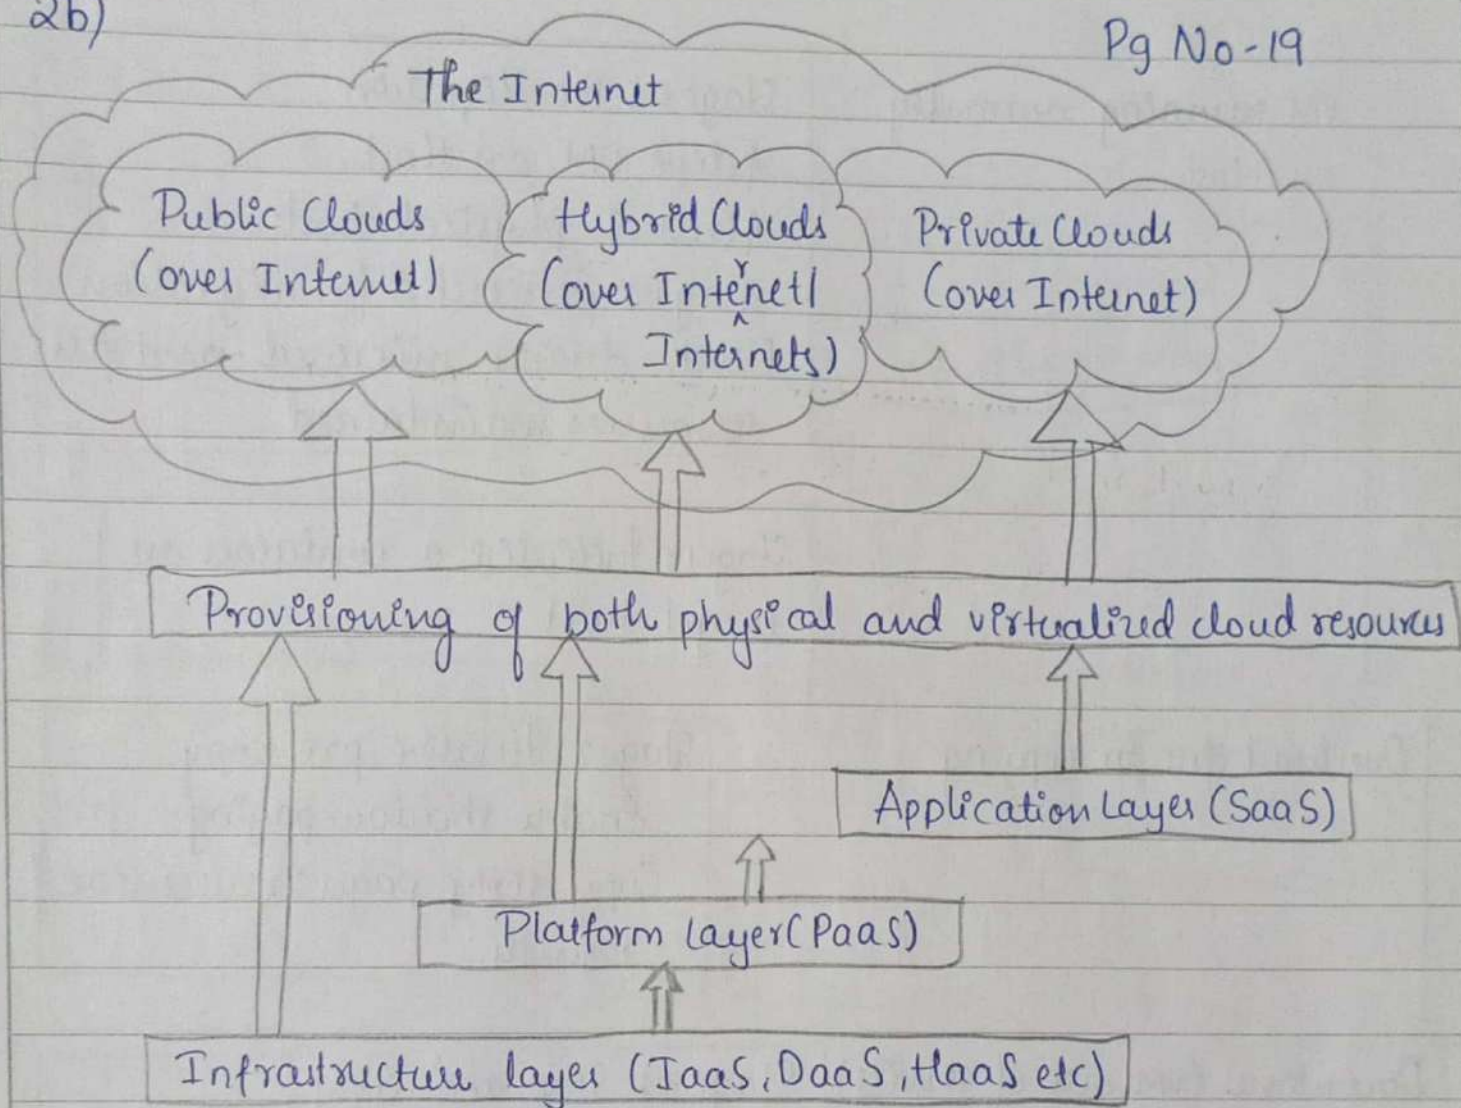 2b)
Pg No-19
The Internet
Public Clouds
(over Internet)
Hybrid Clouds
(over Internet/
Internets)
Private Clouds
(over Internet)
Provisioning of both physical and virtualized cloud resources
Application Layer (SaaS)
Platform Layer (PaaS)
Infrastructure layer (IaaS, DaaS, HaaS etc)